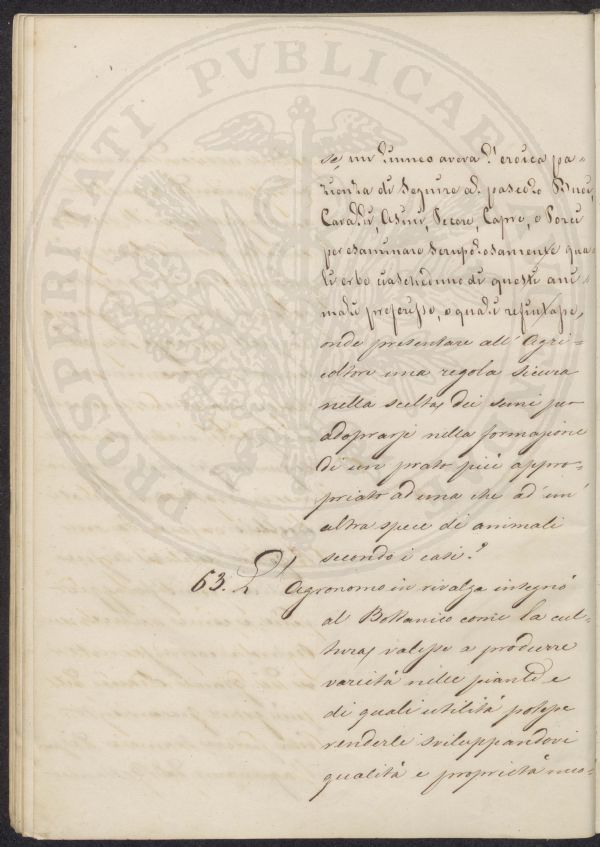 se, un Linneo avera l'eroica pa-
zienza di Seguire al pascolo Bovi,
Cavalli, Asini, Pecore, Capre, e Porci
per esaminare Scrupolosamente qua-
li erbe ciascheduno di questi ani-
mali preferisse, o quali rifiutasse,
onde presentare all' Agri-
coltore una regola sicura
nella scelta, dei semi per
adoprarsi nella formazione
di un prato più appro-
priato ad una che ad un'
altra specie di animali
secondo i casi?
63. L' Agronomo in rivalga insegnò
al Bottanico come la cul-
tura, valesse a produrre
varietà nelle piante e
di quali utilità potesse
renderle sviluppandovi
qualità e proprietà nuo-
PROSPERITATI PVBLICAE